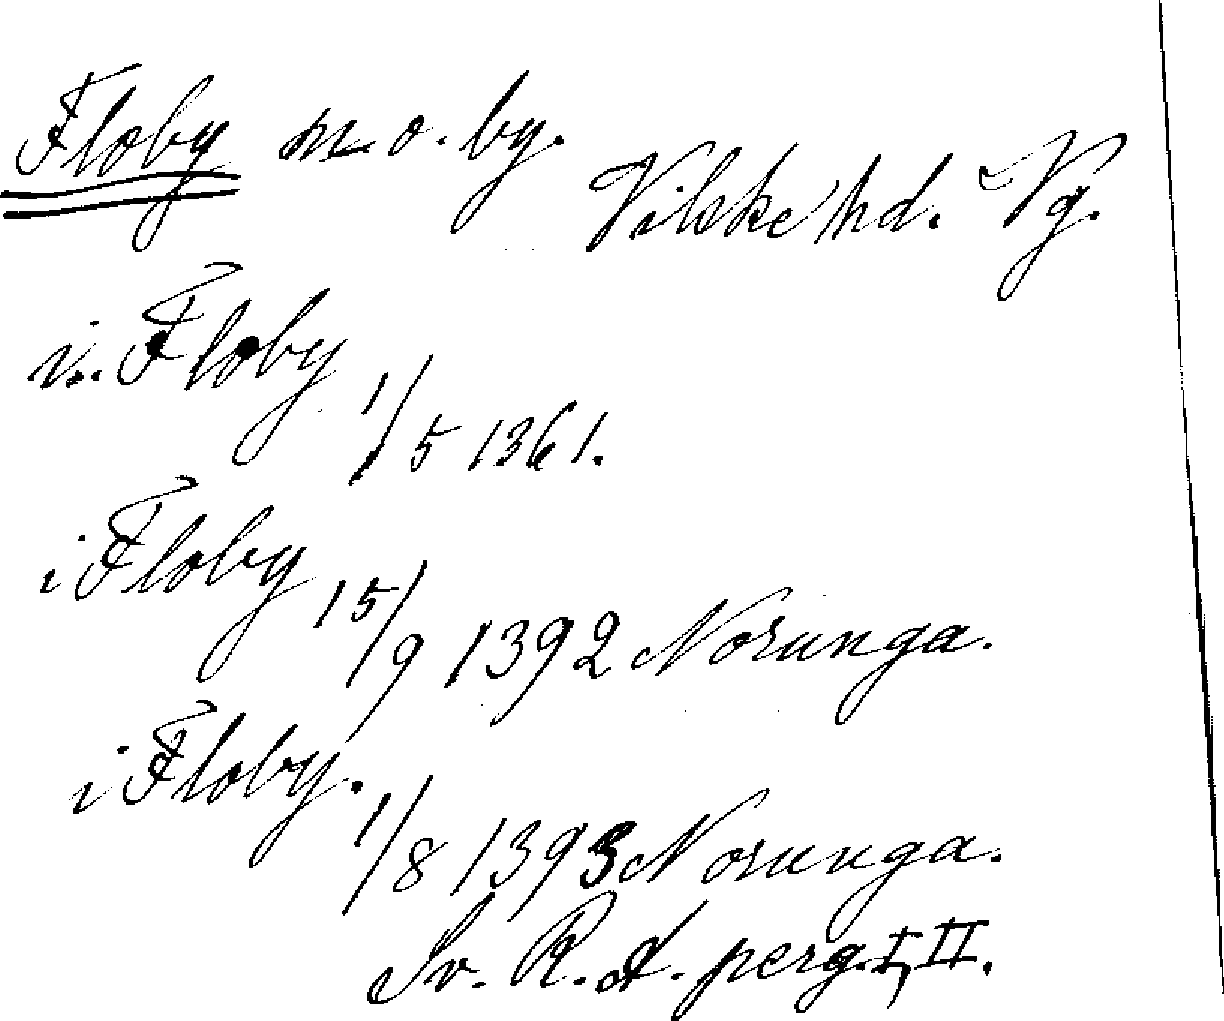 Floby sn o. by. Vilske hd. Vg.
i Floby 1/5 1361.
i Floby 15/9 1392 Norunga.
i Floby. 1/8 1393 Norunga.
Sv. R. A. perg. I, II.